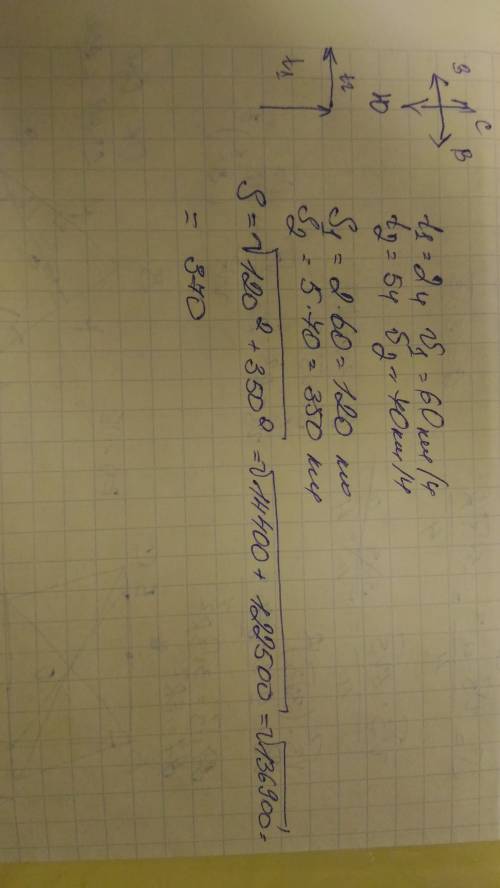 С
З В
Ю
t₂
t₁
t₁ = 2ч v₁ = 60км/ч
t₂ = 5ч v₂ = 70км/ч
S₁ = 2·60 = 120 км
S₂ = 5·70 = 350 км
S = √120² + 350² = √14400 + 122500 = √136900 =
= 370